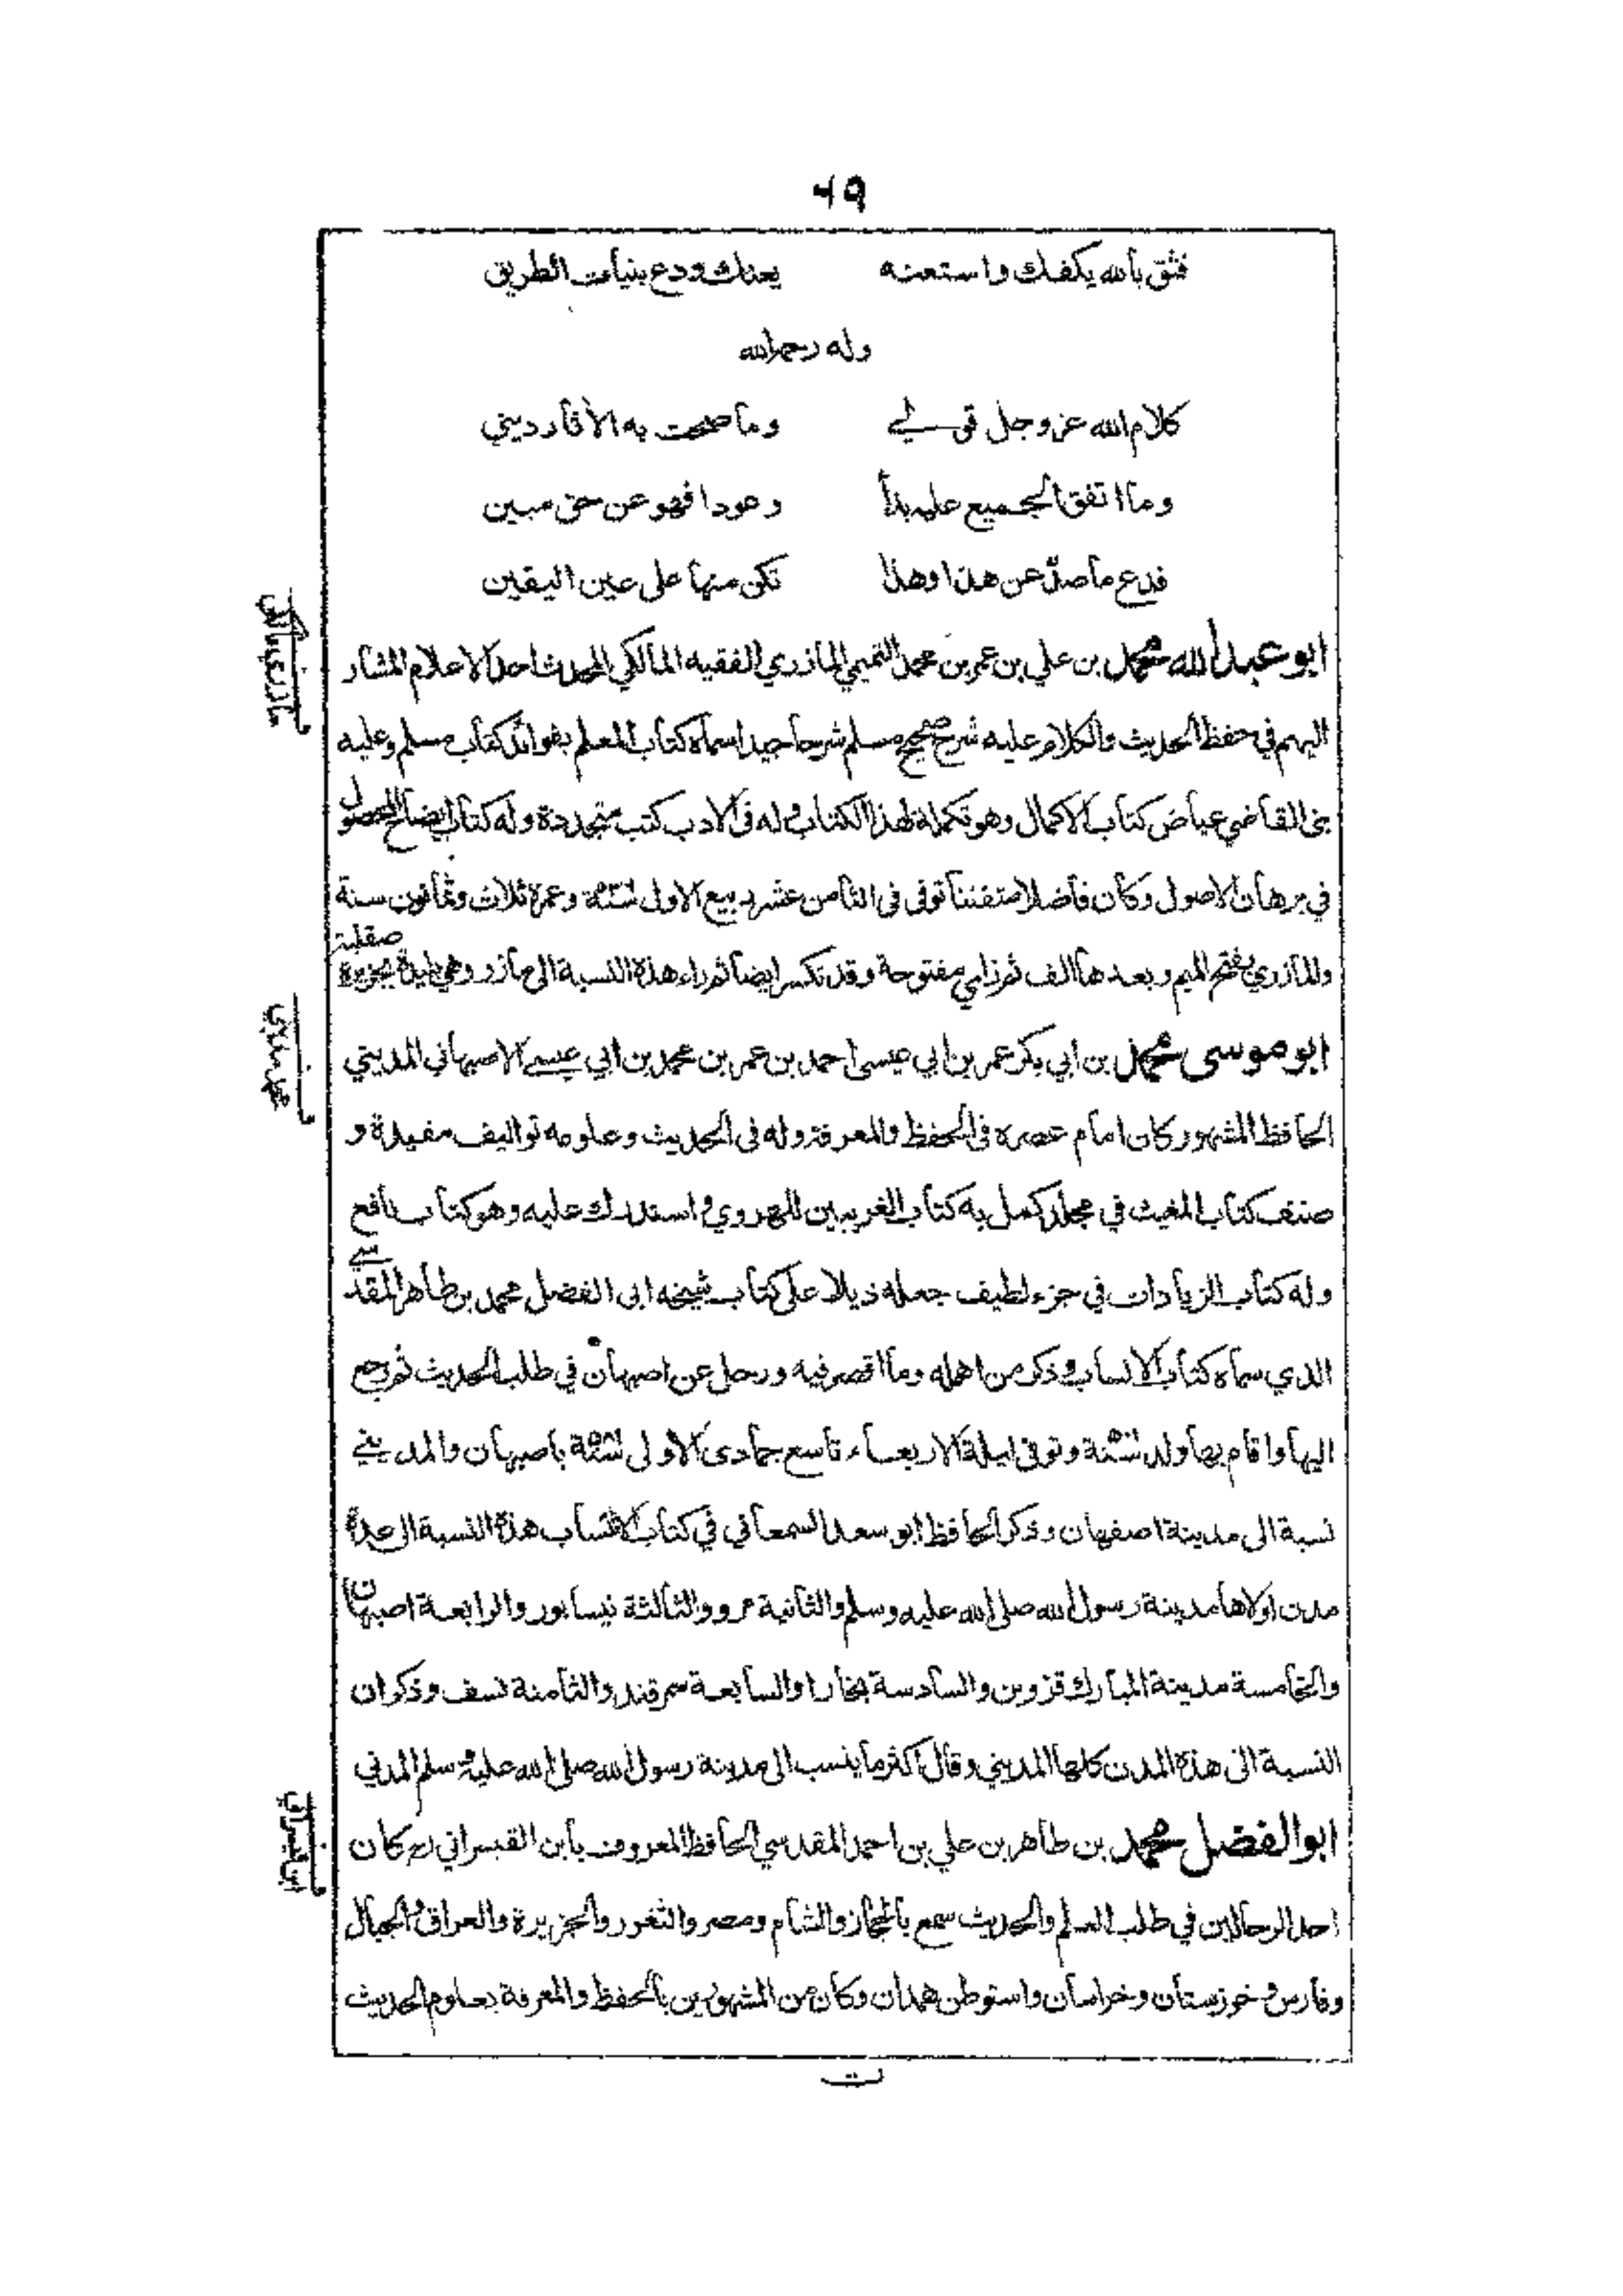 ٦٩
فثق بالله يكفك واستعنه يعنك ودع بنيات الطريق
وله رحمه الله
كلام الله عز وجل قولي وما صحت به الآثار ديني
وما اتفق الجميع عليه بدأ وعودا فهو عن حق مبين
فدع ما صد عن هذا وهذا تكن منها على عين اليقين
ابو عبد الله محمد بن علي بن عمر بن محمد التميمي المازري الفقيه المالكي المحدث احد الاعلام المشار
اليهم في حفظ الحديث والكلام عليه شرح صحيح مسلم شرحا جيدا سماه كتاب المعلم بفوائد كتاب مسلم وعليه
بنى القاضي عياض كتاب الاكمال وهو تكملة لهذا الكتاب وله فى الادب كتب متعددة وله كتاب ايضاح المحصول
في برهان الاصول وكان فاضلا متفننا توفى فى الثامن عشر ربيع الاول وعمره ثلاث وثمانون سنة
والمازري بفتح الميم وبعدها الف ثم زاي مفتوحة وقد تكسر ايضا ثم راء هذه النسبة الى مازر وهي بليدة بجزيرة صقلية
ابو موسى محمد بن ابي بكر عمر بن ابي عيسى احمد بن عمر بن محمد بن ابي عيسى الاصبهاني المديني
الحافظ المشهور كان امام عصره فى الحفظ والمعرفة وله فى الحديث وعلومه تواليف مفيدة و
صنف كتاب المغيث في مجلد كمل به كتاب الغريبين للهروي واستدرك عليه وهو كتاب نافع
وله كتاب الزيادات في جزء لطيف جعله ذيلا على كتاب شيخه ابى الفضل محمد بن طاهر المقدسي
الذي سماه كتاب الانساب وذكر من اهمله وما اقصر فيه ورحل عن اصبهان في طلب الحديث ثم رجع
اليها واقام بها ولد وتوفى ليلة الاربعاء تاسع جمادى الاولى باصبهان والمديني
نسبة الى مدينة اصفهان وذكر الحافظ ابو سعد السمعاني في كتاب الانساب هذه النسبة الى عدة
مدن اولاها مدينة رسول الله صلى الله عليه وسلم والثانية مرو والثالثة نيسابور والرابعة اصبهان
والخامسة مدينة المبارك قزوين والسادسة بخارا والسابعة سمرقند والثامنة نسف وذكر ان
النسبة الى هذه المدن كلها المديني وقال اكثر ما ينسب الى مدينة رسول الله صلى الله عليه وسلم المدني
ابو الفضل محمد بن طاهر بن علي بن احمد المقدسي الحافظ المعروف بابن القيسراني رح كان
احد الرحالين في طلب العلم والحديث سمع بالحجاز والشام ومصر والثغور والجزيرة والعراق والجبال
وفارس وخوزستان وخراسان واستوطن همدان وكان من المشهورين بالحفظ والمعرفة بعلوم الحديث
مازري مالكي
محمد مديني
ابن القيسراني